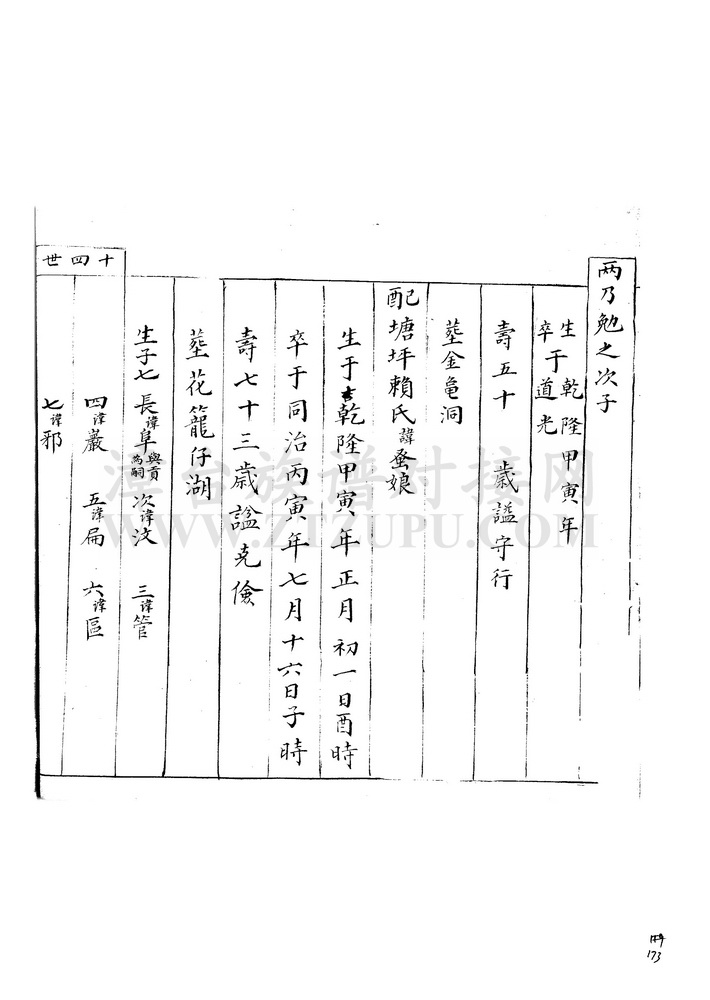 两乃勉之次子
生乾隆甲寅年
卒于道光
壽五十　歲諡守行
墓金亀洞
配塘坪賴氏諱蚕娘
生于乾隆甲寅年正月初一日酉時
卒于同治丙寅年七月十六日子時
壽七十三歲諡克儉
墓花籠仔湖
生子七長諱阜與貢為嗣次諱汶三諱管
四諱巖五諱扁六諱區
七諱邪
十四世
漳台族谱对接网
WWW.ZTZUPU.COM
173